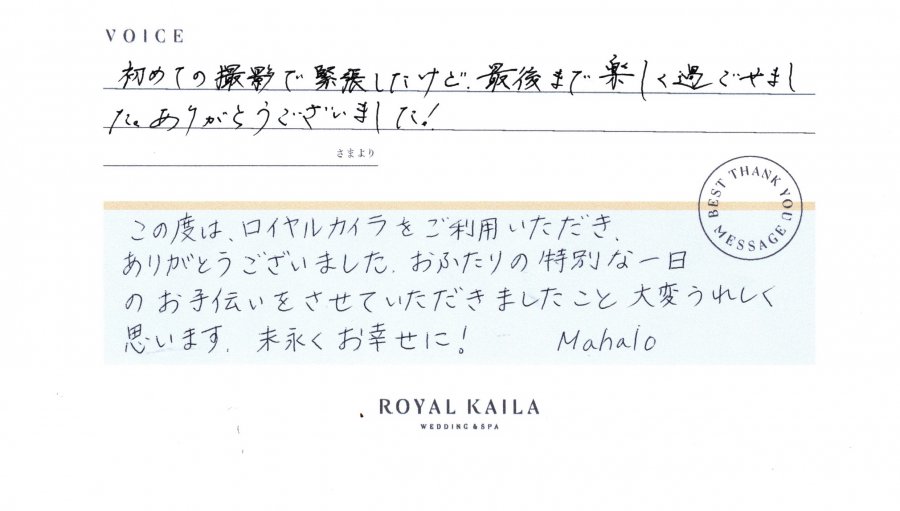 VOICE
初めての撮影で緊張したけど、最後まで楽しく過ごせまし
た。ありがとうございました!
さまより
BEST THANK YOU MESSAGE
この度は、ロイヤルカイラをご利用いただき、
ありがとうございました。おふたりの特別な一日
のお手伝いをさせていただきましたこと大変うれしく
思います。末永くお幸せに! Mahalo
ROYAL KAILA
WEDDING & SPA